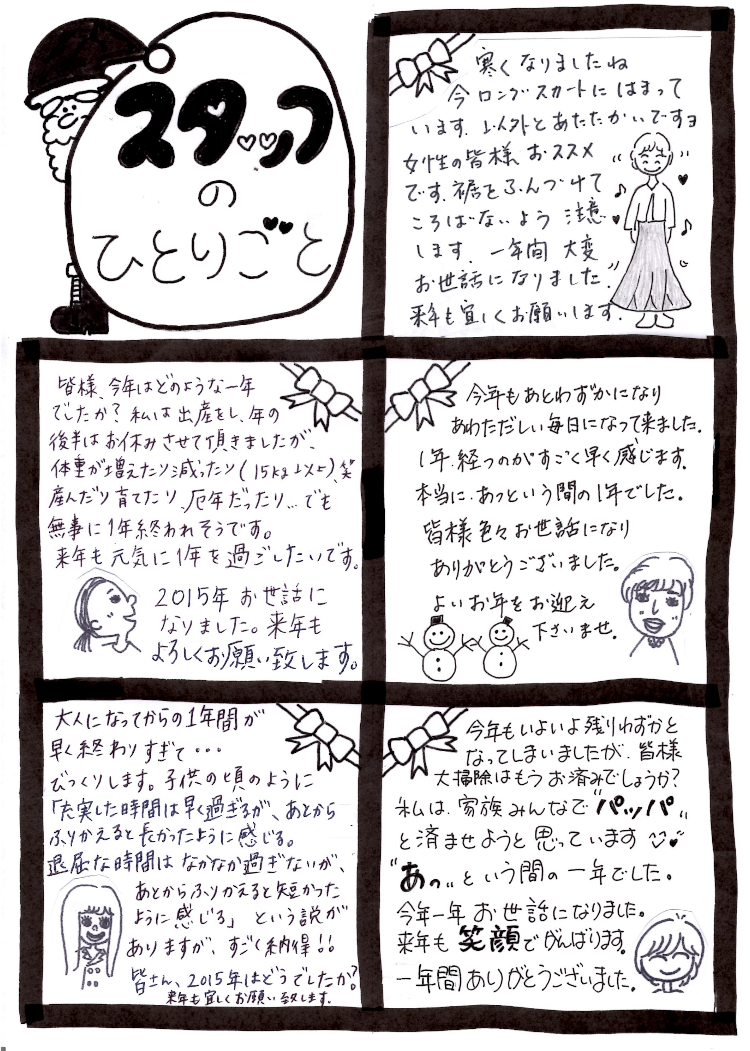 スタッフ
の
ひとりごと
寒くなりましたね
今ロングスカートにはまって
います。以外とあたたかいですョ
女性の皆様、おススメ
です。裾をふんづけて
ころばないよう注意
します。一年間大変
お世話になりました。
来年も宜しくお願いします。
皆様、今年はどのような一年
でしたか？私は出産をし、年の
後半はお休みさせて頂きましたが、
体重が増えたり減ったり(15kg以上)、笑
産んだり育てたり、厄年だったり…でも
無事に1年終われそうです。
来年も元気に1年を過ごしたいです。
2015年お世話に
なりました。来年も
よろしくお願い致します。
今年もあとわずかになり
あわただしい毎日になって来ました。
1年、経つのがすごく早く感じます。
本当に、あっという間の1年でした。
皆様色々お世話になり
ありがとうございました。
よいお年をお迎え
下さいませ。
大人になってからの1年間が
早く終わりすぎて・・・
びっくりします。子供の頃のように
「充実した時間は早く過ぎるが、あとから
ふりかえると長かったように感じる。
退屈な時間はなかなか過ぎないが、
あとからふりかえると短かった
ように感じる」という説が
ありますが、すごく納得！！
皆さん、2015年はどうでしたか？
来年も宜しくお願い致します。
今年もいよいよ残りわずかと
なってしまいましたが、皆様
大掃除はもうお済みでしょうか？
私は、家族みんなで"パッパ"
と済ませようと思っています
"あっ"という間の一年でした。
今年一年お世話になりました。
来年も笑顔でがんばります。
一年間ありがとうございました。